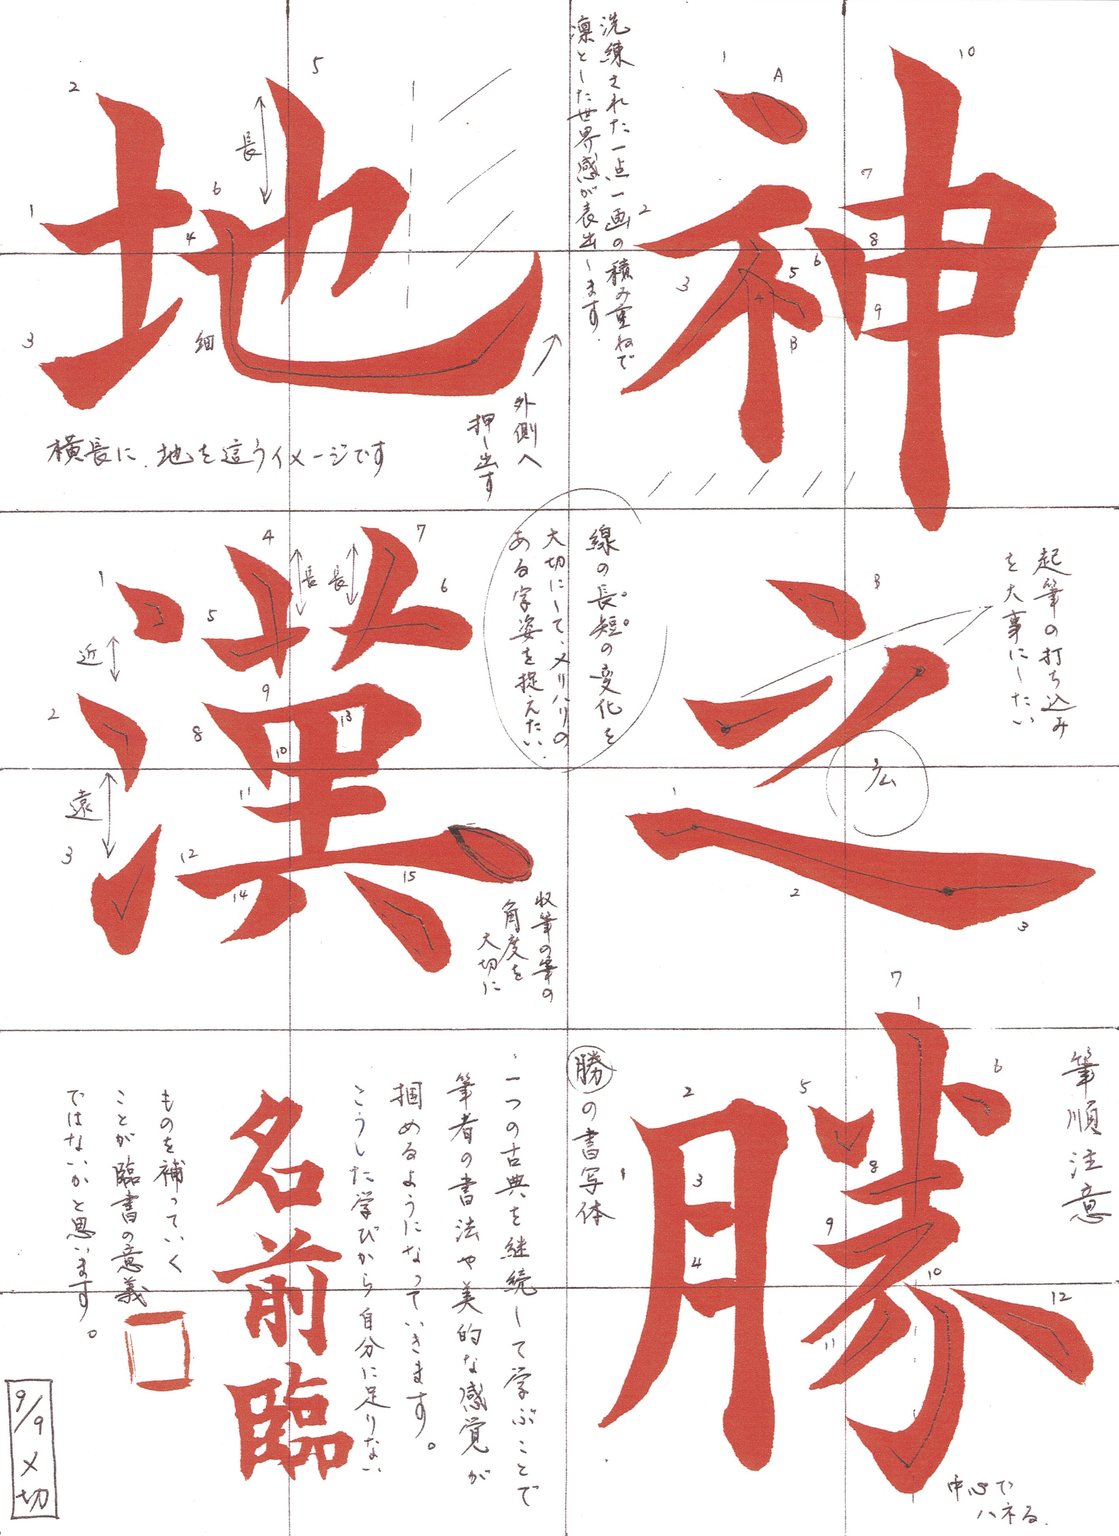 神
1
A
10
2
7
3
6
8
5
4
9
B
洗練された一点一画の積み重ねで
凛とした世界感が表出します.
之
B
起筆の打ち込み
を大事にしたい
広
1
2
3
勝
筆順注意
7
6
5
2
8
3
9
4
10
12
11
1
中心で
ハネる.
勝の書写体
地
2
5
長
6
1
4
3
細
外側へ
押し出す
横長に、地を這うイメージです
漢
線の長短の変化を
大切にして、メリハリの
ある字姿を捉えたい.
1
4
長
長
7
5
6
近
2
9
8
13
10
遠
11
3
12
14
15
収筆の筆の
角度を
大切に
一つの古典を継続して学ぶことで
筆者の書法や美的な感覚が
掴めるようになっていきます。
こうした学びから自分に足りない
ものを補っていく
ことが臨書の意義
ではないかと思います。
名前臨
9/9〆切